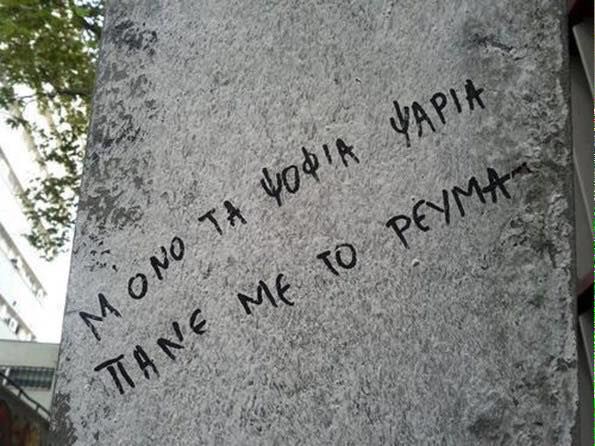 ΜΟΝΟ ΤΑ ΨΟΦΙΑ ΨΑΡΙΑ
ΠΑΝΕ ΜΕ ΤΟ ΡΕΥΜΑ